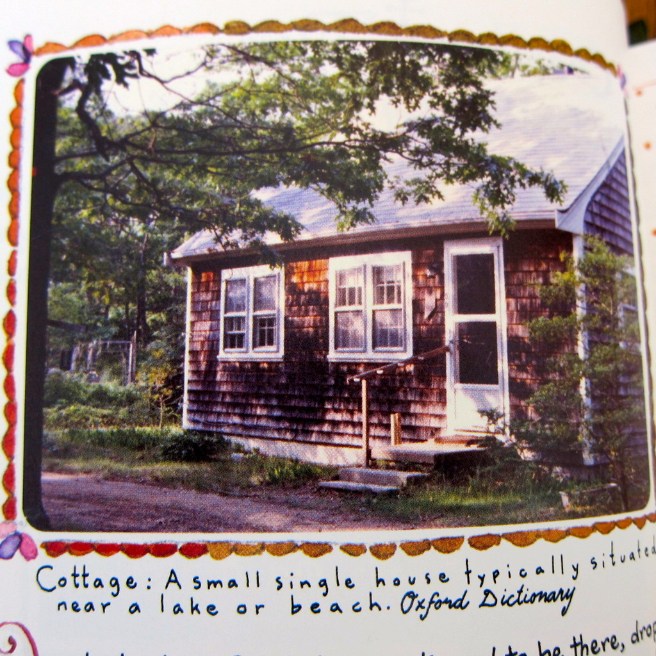 Cottage: A small single house typically situated
near a lake or beach. Oxford Dictionary
to be there, drop